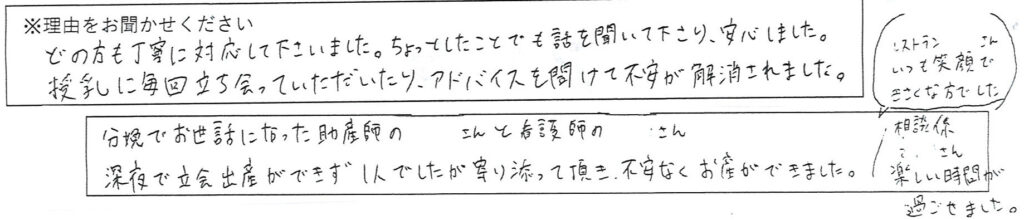 ※理由をお聞かせください
どの方も丁寧に対応して下さいました。ちょっとしたことでも話を聞いて下さり、安心しました。
授乳に毎回立ち会っていただいたり、アドバイスを聞けて不安が解消されました。
分娩でお世話になった助産師の さんと看護師の さん
深夜で立会出産ができず1人でしたが寄り添って頂き、不安なくお産ができました。
レストラン さん
いつも笑顔で
きさくな方でした
相談係
さん
楽しい時間が
過ごせました。